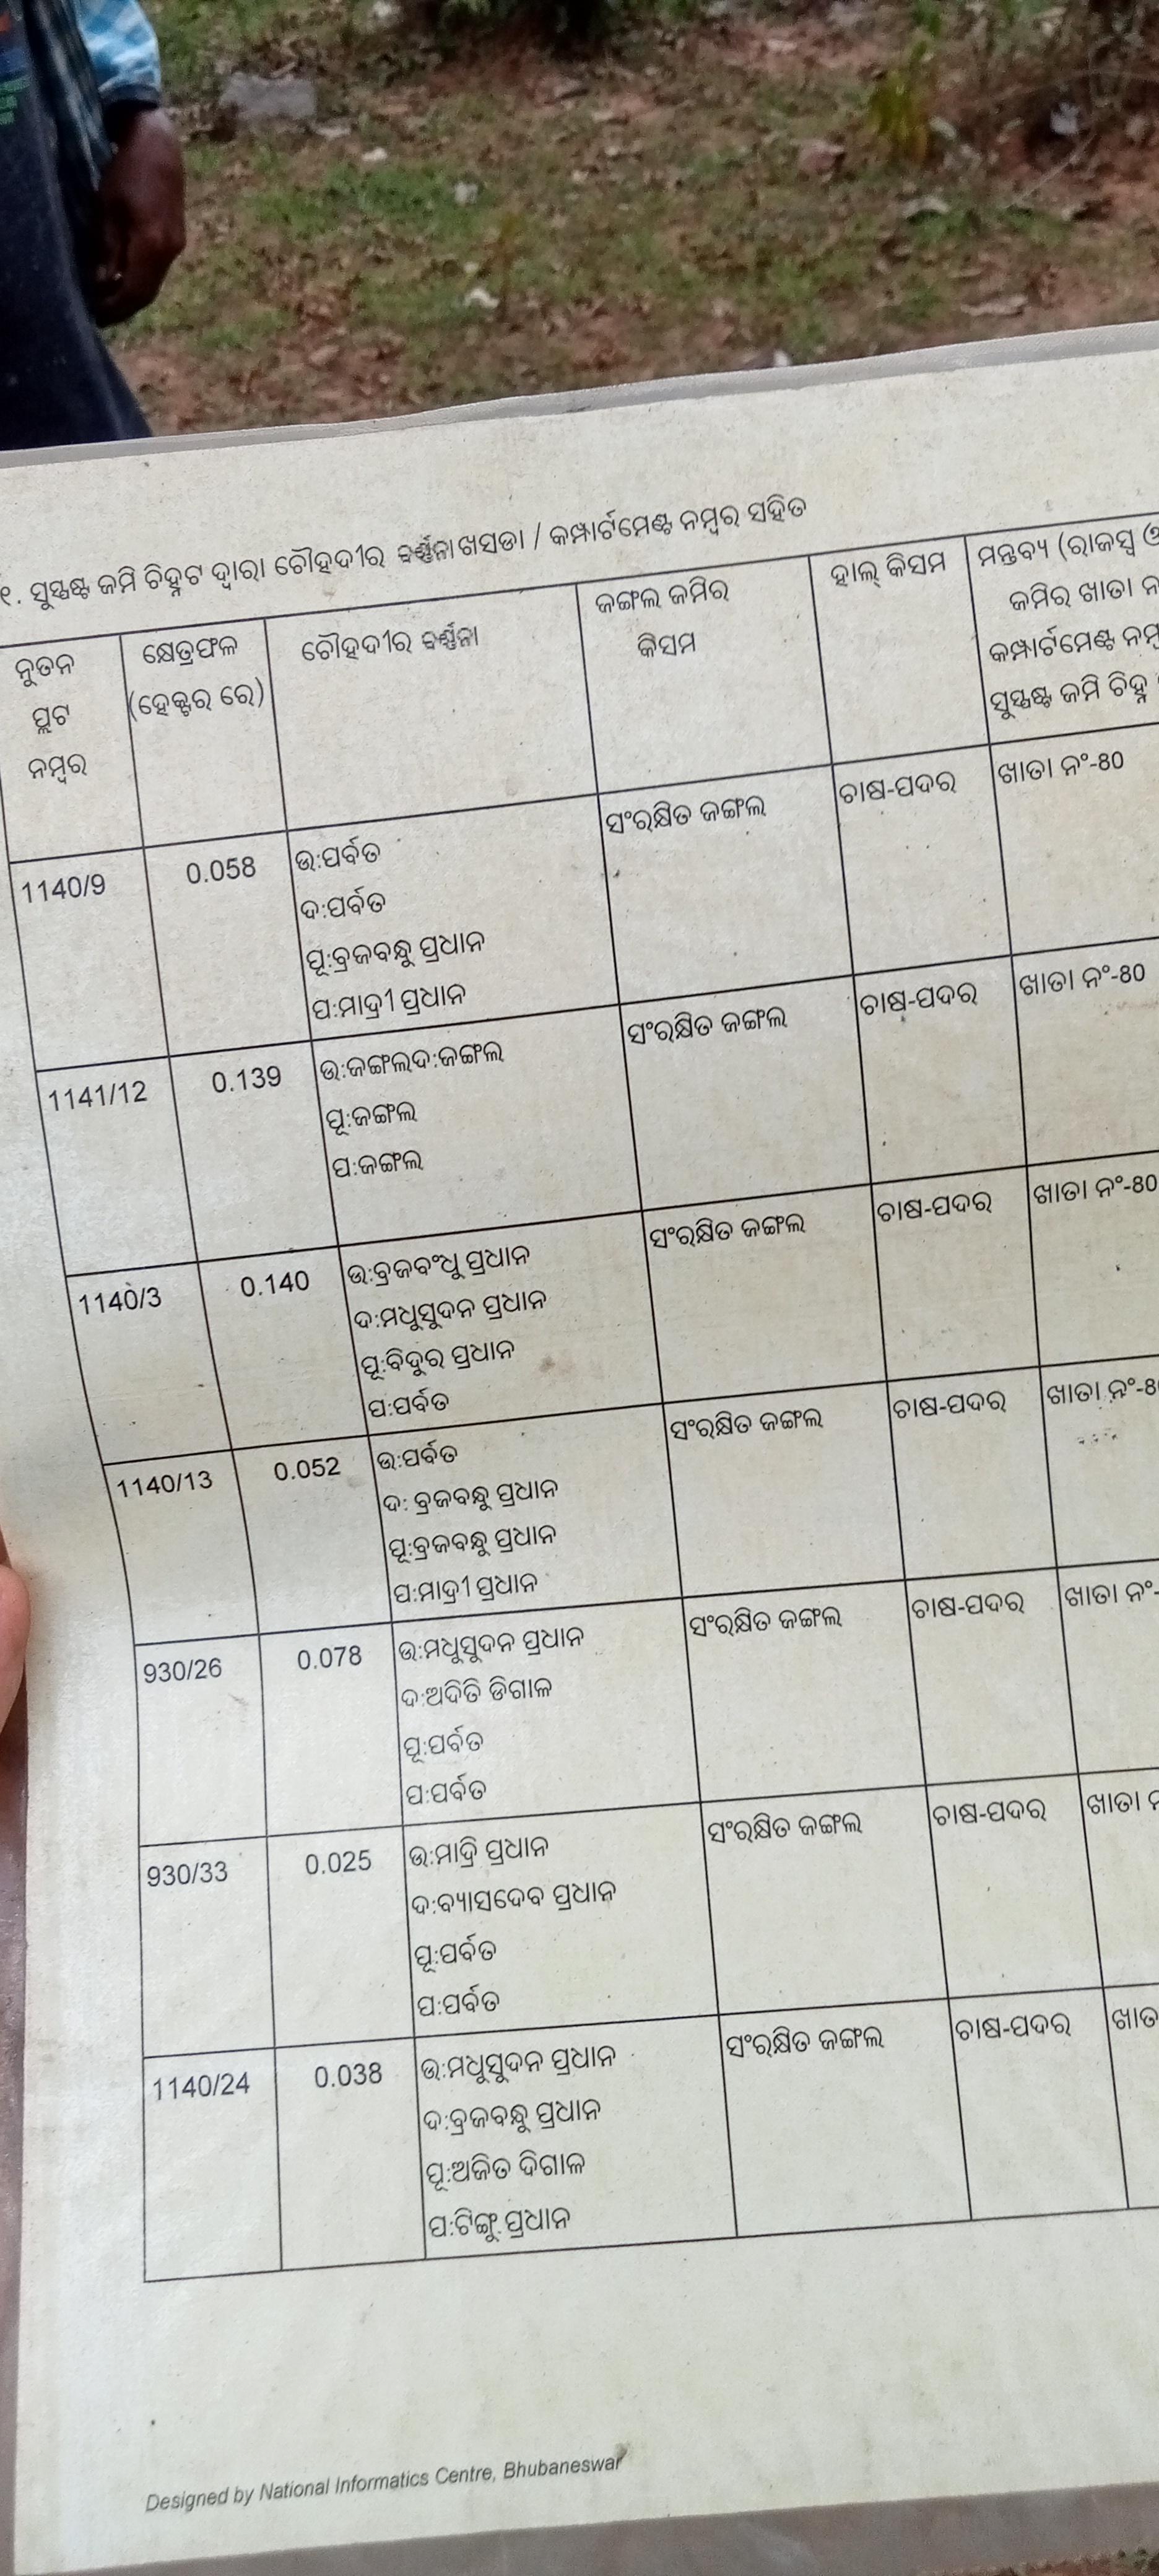 ୧. ସୁସ୍ପଷ୍ଟ ଜମି ଚିହ୍ନଟ ଦ୍ୱାରା ଚୌହଦୀର ବର୍ଣ୍ଣନା ଖସଡା / କମ୍ପାର୍ଟମେଣ୍ଟ ନମ୍ବର ସହିତ
ନୁତନ ପ୍ଲଟ ନମ୍ବର
କ୍ଷେତ୍ରଫଳ (ହେକ୍ଟର ରେ)
ଚୌହଦୀର ବର୍ଣ୍ଣନା
ଜଙ୍ଗଲ ଜମିର କିସମ
ହାଲ୍ କିସମ
ମନ୍ତବ୍ୟ (ରାଜସ୍ୱ
ଜମିର ଖାତା
କମ୍ପାର୍ଟମେଣ୍ଟ
ସୁସ୍ପଷ୍ଟ ଜମି ଚିହ୍ନ
1140/9 0.058 ଉ:ପର୍ବତ ସଂରକ୍ଷିତ ଜଙ୍ଗଲ ଚାଷ-ପଦର ଖାତା ନଂ-80
ଦ:ପର୍ବତ
ପୂ:ବ୍ରଜବନ୍ଧୁ ପ୍ରଧାନ
ପ:ମାଦ୍ରୀ ପ୍ରଧାନ
1141/12 0.139 ଉ:ଜଙ୍ଗଲଦ:ଜଙ୍ଗଲ ସଂରକ୍ଷିତ ଜଙ୍ଗଲ ଚାଷ-ପଦର ଖାତା ନଂ-80
ପୂ:ଜଙ୍ଗଲ
ପ:ଜଙ୍ଗଲ
1140/3 0.140 ଉ:ବ୍ରଜବଂଧୁ ପ୍ରଧାନ ସଂରକ୍ଷିତ ଜଙ୍ଗଲ ଚାଷ-ପଦର ଖାତା ନଂ-80
ଦ:ମଧୁସୁଦନ ପ୍ରଧାନ
ପୂ:ବିଦୁର ପ୍ରଧାନ
ପ:ପର୍ବତ
1140/13 0.052 ଉ:ପର୍ବତ ସଂରକ୍ଷିତ ଜଙ୍ଗଲ ଚାଷ-ପଦର ଖାତା ନଂ-8
ଦ: ବ୍ରଜବନ୍ଧୁ ପ୍ରଧାନ
ପୂ:ବ୍ରଜବନ୍ଧୁ ପ୍ରଧାନ
ପ:ମାଦ୍ରୀ ପ୍ରଧାନ
930/26 0.078 ଉ:ମଧୁସୁଦନ ପ୍ରଧାନ ସଂରକ୍ଷିତ ଜଙ୍ଗଲ ଚାଷ-ପଦର ଖାତା ନଂ-
ଦ:ଅଦିତି ଡିଗାଳ
ପୂ:ପର୍ବତ
ପ:ପର୍ବତ
930/33 0.025 ଉ:ମାଦ୍ରି ପ୍ରଧାନ ସଂରକ୍ଷିତ ଜଙ୍ଗଲ ଚାଷ-ପଦର ଖାତା
ଦ:ବ୍ୟାସଦେବ ପ୍ରଧାନ
ପୂ:ପର୍ବତ
ପ:ପର୍ବତ
1140/24 0.038 ଉ:ମଧୁସୁଦନ ପ୍ରଧାନ ସଂରକ୍ଷିତ ଜଙ୍ଗଲ ଚାଷ-ପଦର ଖାତ
ଦ:ବ୍ରଜବନ୍ଧୁ ପ୍ରଧାନ
ପୂ:ଅଜିତ ଦିଗାଳ
ପ:ଟିଙ୍କୁ ପ୍ରଧାନ
Designed by National Informatics Centre, Bhubaneswar